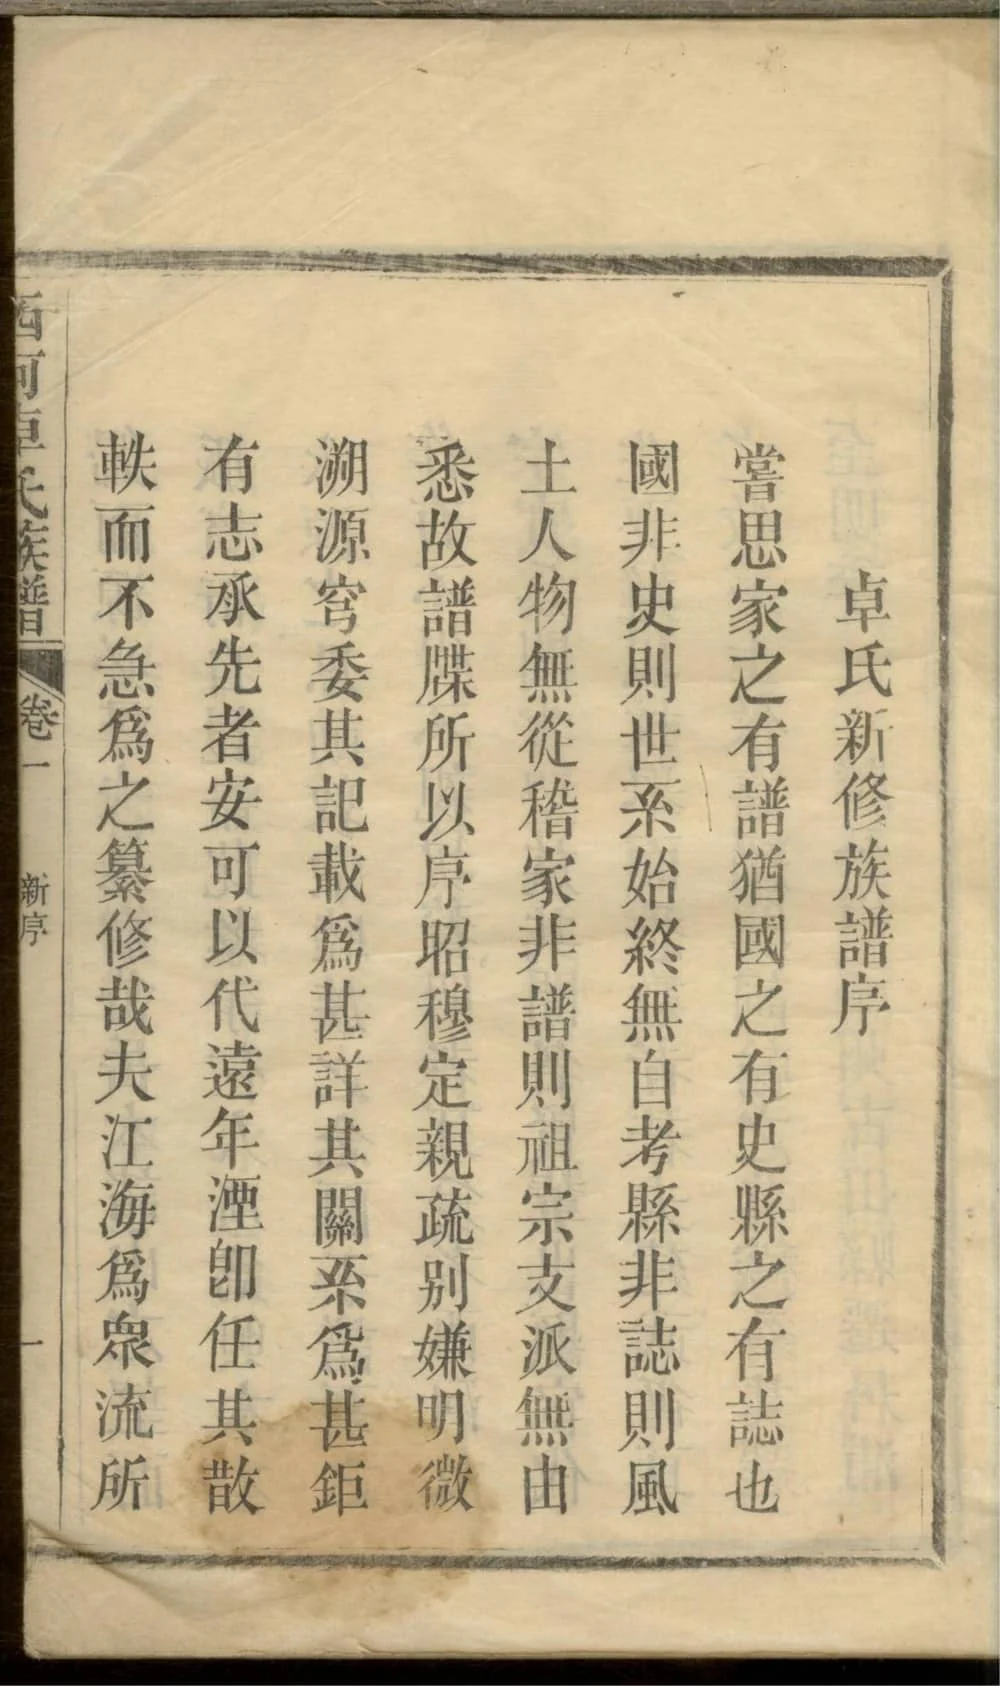 卓氏新修族譜序
嘗思家之有譜猶國之有史縣之有誌也
國非史則世系始終無自考縣非誌則風
土人物無從稽家非譜則祖宗支派無由
悉故譜牒所以序昭穆定親疏别嫌明微
溯源窮委其記載爲甚詳其關系爲甚鉅
有志承先者安可以代遠年湮卽任其散
軼而不急爲之纂修哉夫江海爲衆流所
西河卓氏族譜 卷一 新序 一